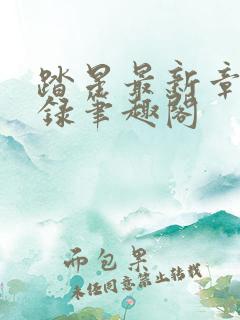 踏星最新章
录笔趣阁
而包果
未经同意禁止转载